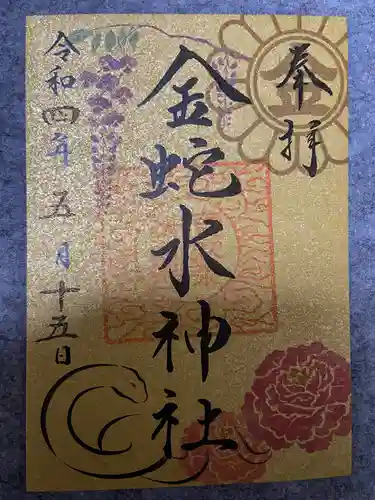 奉拝
金蛇水神社
令和四年五月十五日
金